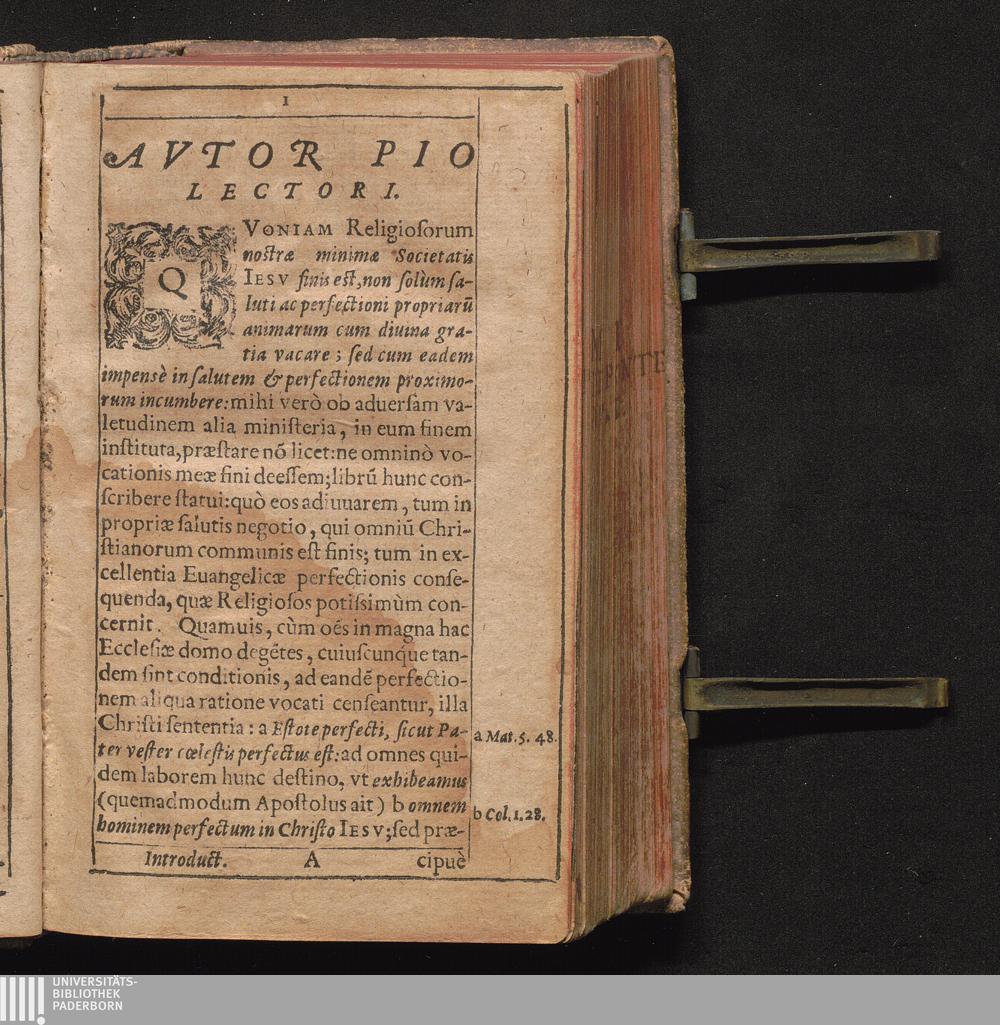 1
AVTOR PIO
LECTORI.
QVONIAM Religioſorum
noſtræ minimæ Societatis
IESV finis eſt, non ſolùm ſa-
luti ac perfectioni propriarũ
animarum cum diuina gra-
tia vacare; ſed cum eadem
impensè in ſalutem & perfectionem proximo-
rum incumbere: mihi verò ob aduerſam va-
letudinem alia miniſteria, in eum finem
inſtituta, præſtare nõ licet: ne omninò vo-
cationis meæ fini deeſſem; librũ hunc con-
ſcribere ſtatui: quò eos adiuuarem, tum in
propriæ ſalutis negotio, qui omniũ Chri-
ſtianorum communis eſt finis; tum in ex-
cellentia Euangelicæ perfectionis conſe-
quenda, quæ Religioſos potiſsimùm con-
cernit. Quamuis, cùm oẽs in magna hac
Eccleſiæ domo degẽtes, cuiuſcunq́ue tan-
dem ſint conditionis, ad eandẽ perfectio-
nem aliqua ratione vocati cenſeantur, illa
Chriſti ſententia: a Eſtote perfecti, ſicut Pa-
a Mat. 5. 48.
ter veſter cœleſtis perfectus eſt: ad omnes qui-
dem laborem hunc deſtino, vt exhibeamus
(quemadmodum Apoſtolus ait) b omnem
b Col. 1. 28.
hominem perfectum in Chriſto IESV; ſed præ-
Introduct. A cipuè
UNIVERSITÄTS-
BIBLIOTHEK
PADERBORN